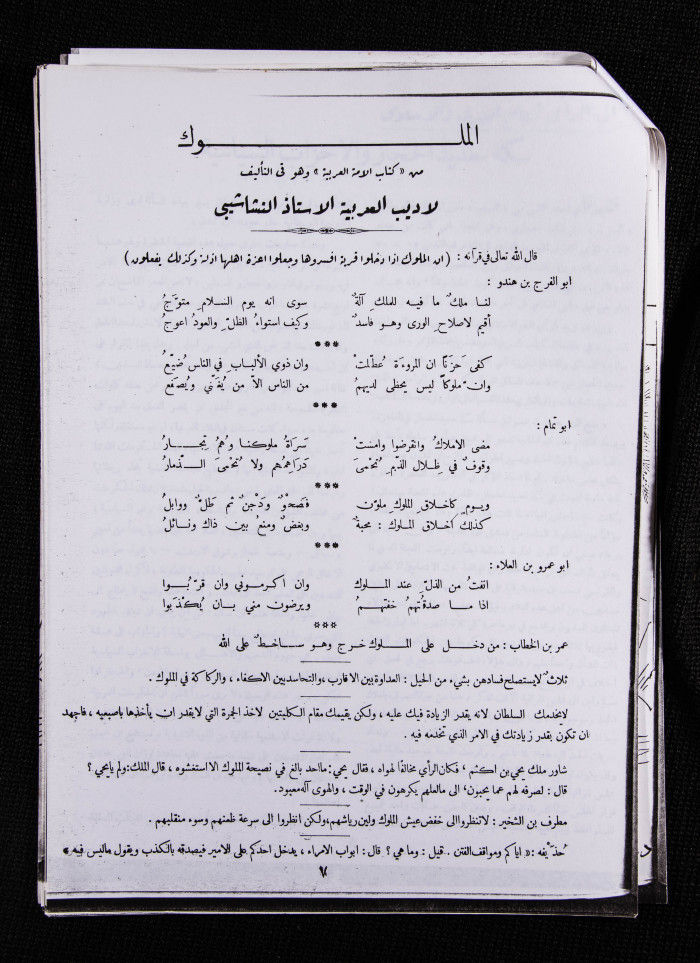 الملوك
من «كتاب الامة العربية» وهو في التأليف
لاديب العربية الاستاذ النشاشيبي
قال الله تعالى في قرآنه : (ان الملوك اذا دخلوا قرية افسدوها وجعلوا اعزة اهلها اذلة وكذلك يفعلون)
ابو الفرج بن هندو :
لنا ملكٌ ما فيه للملكِ آلةٌ سوى انه يوم السلامِ متوَّجُ
أقيم لاصلاحِ الورى وهو فاسدٌ وكيف استواءُ الظلّ والعودُ اعوجُ
***
كفى حَزَناً ان المروءة عُطّلتْ وان ذوي الألباب في الناس ضُيّعُ
وانّ ملوكاً ليس يحظى لديهمُ من الناس الاّ من يُغنّي ويُصفعُ
***
ابو تمام :
مضى الاملاكُ وانقرضوا وامستْ سَراةُ ملوكنا وهُمُ تِجارُ
وقوفٌ في ظِلال الذّمِ تُحمى دراهِمُهم ولا تُحمى الذّمارُ
***
ويومٍ كاخلاقِ الملوكِ ملوّن فصَحْوٌ ودَجْنٌ ثم طَلٌّ ووابلُ
كذلك اخلاق الملوك : محبةٌ وبغضٌ ومنعٌ بين ذاك ونائلُ
***
ابو عمرو بن العلاء :
انفتُ من الذلِّ عند الملوك وان أكرموني وان قرّبُوا
اذا ما صدقْتُهمُ خفتهمُ ويرضون مني بان يُكذَبوا
***
عمر بن الخطاب : من دخل على الملوك خرج وهو ساخطٌ على الله
ثلاثٌ لايستصلح فسادهن بشيء من الحيل : العداوة بين الاقارب ، والتحاسد بين الاكفاء ، والركاكة في الملوك .
لايخدمك السلطان لانه يقدر الزيادة فيك عليه ، ولكن يقيمك مقام الكلبتين لاخذ الجمرة التي لايقدر ان يأخذها باصبعيه ، فاجهد
ان تكون بقدر زيادتك في الامر الذي تخدمه فيه .
شاور ملك يحيى بن اكثم ، فكان الرأي مخالفاً لهواه ، فقال يحيى : ما احد بالغ في نصيحة الملوك الا استغشوه ، قال الملك : ولم يايحيى ؟
قال : لصرفه لهم عما يحبون ، الى مالعلهم يكرهون في الوقت ، والهوى آله معبود .
مطرف بن الشخير : لاتنظروا الى خفض عيش الملوك ولين رياشهم ، ولكن انظروا الى سرعة ظعنهم وسوء منقلبهم .
حُذَيْفه : «اياكم ومواقف الفتن . . قيل : وما هي ؟ قال : ابواب الامراء ، يدخل احدكم على الامير فيصدقه بالكذب ويقول ماليس فيه»
٧